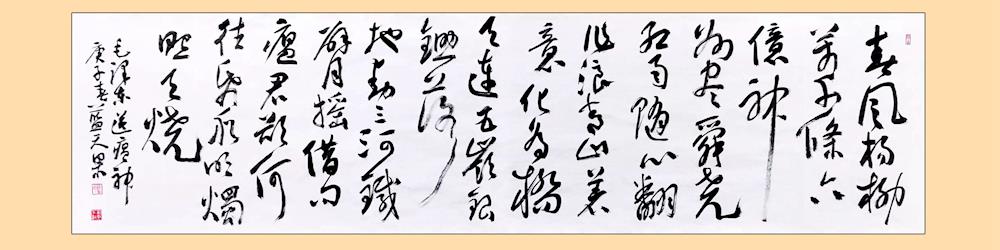 春風楊柳
萬千條六
億神
州尽舜堯
紅雨隨心翻
作浪青山着
意化为橋
天連五嶺銀
鋤落
地動三河鐵
臂摇借问
瘟君欲何
往紙船明燭
照天燒
毛澤東送瘟神
庚子春藍天